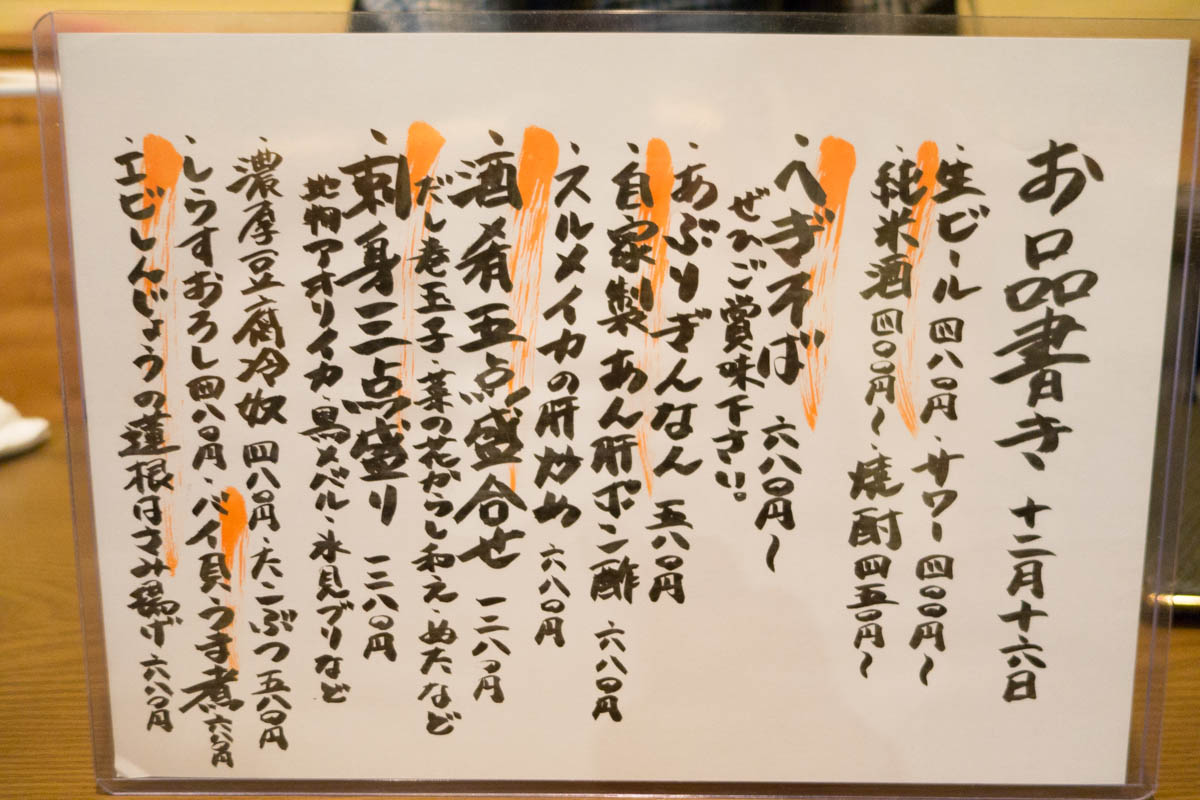 お品書き、十二月十六日
・生ビール 四八〇円・サワー 四〇〇円〜
・純米酒 四〇〇円〜・焼酎 四五〇円〜
・へぎそば 六八〇円〜
ぜひご賞味下さい。
・あぶりぎんなん 五八〇円
・自家製あん肝ポン酢 六八〇円
・スルメイカの肝炒め 六八〇円
・酒肴五点盛合せ 一二八〇円
だし巻玉子・菜の花からし和え・ぬたなど
・刺身三点盛り 一三八〇円
地物アオリイカ・黒メバル・氷見ブリなど
・濃厚豆腐冷奴 四八〇円・たこぶつ 五八〇円
・しらすおろし 四八〇円・バイ貝うま煮 六八〇円
・エビしんじょうの蓮根はさみ揚げ 六八〇円